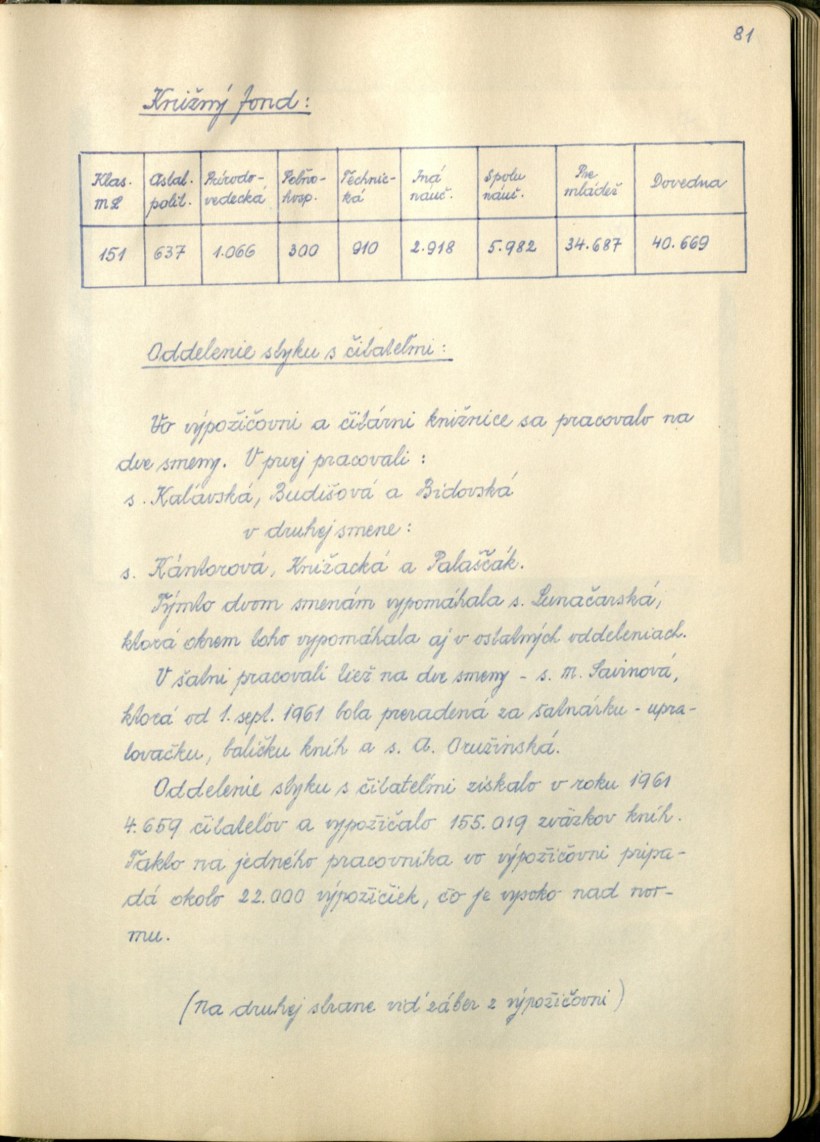 81
Knižný fond:
Klas. Ostat. Prírodo- Poľno- Technic- Iná Spolu Pre Dovedna
ML polit. vedecká hosp. ká náuč. náuč. mládež
151 637 1.066 300 910 2.918 5.982 34.687 40.669
Oddelenie styku s čitateľmi:
Vo výpožičovni a čitárni knižnice sa pracovalo na
dve smeny. V prvej pracovali:
s. Kalavská, Budišová a Bidovská
v druhej smene:
s. Kántorová, Knižacká a Palaščák.
Týmto dvom smenám vypomáhala s. Lunačarská,
ktorá okrem toho vypomáhala aj v ostatných oddeleniach.
V šatni pracovali tiež na dve smeny - s. M. Savinová,
ktorá od 1. sept. 1961 bola preradená za šatnárku - upra-
tovačku, baličku kníh a s. A. Oružinská.
Oddelenie styku s čitateľmi získalo v roku 1961
4.659 čitateľov a vypožičalo 155.019 zväzkov kníh.
Takto na jedného pracovníka vo výpožičovni pripa-
dá okolo 22.000 výpožičiek, čo je vysoko nad nor-
mu.
(Na druhej strane viď záber z výpožičovni)